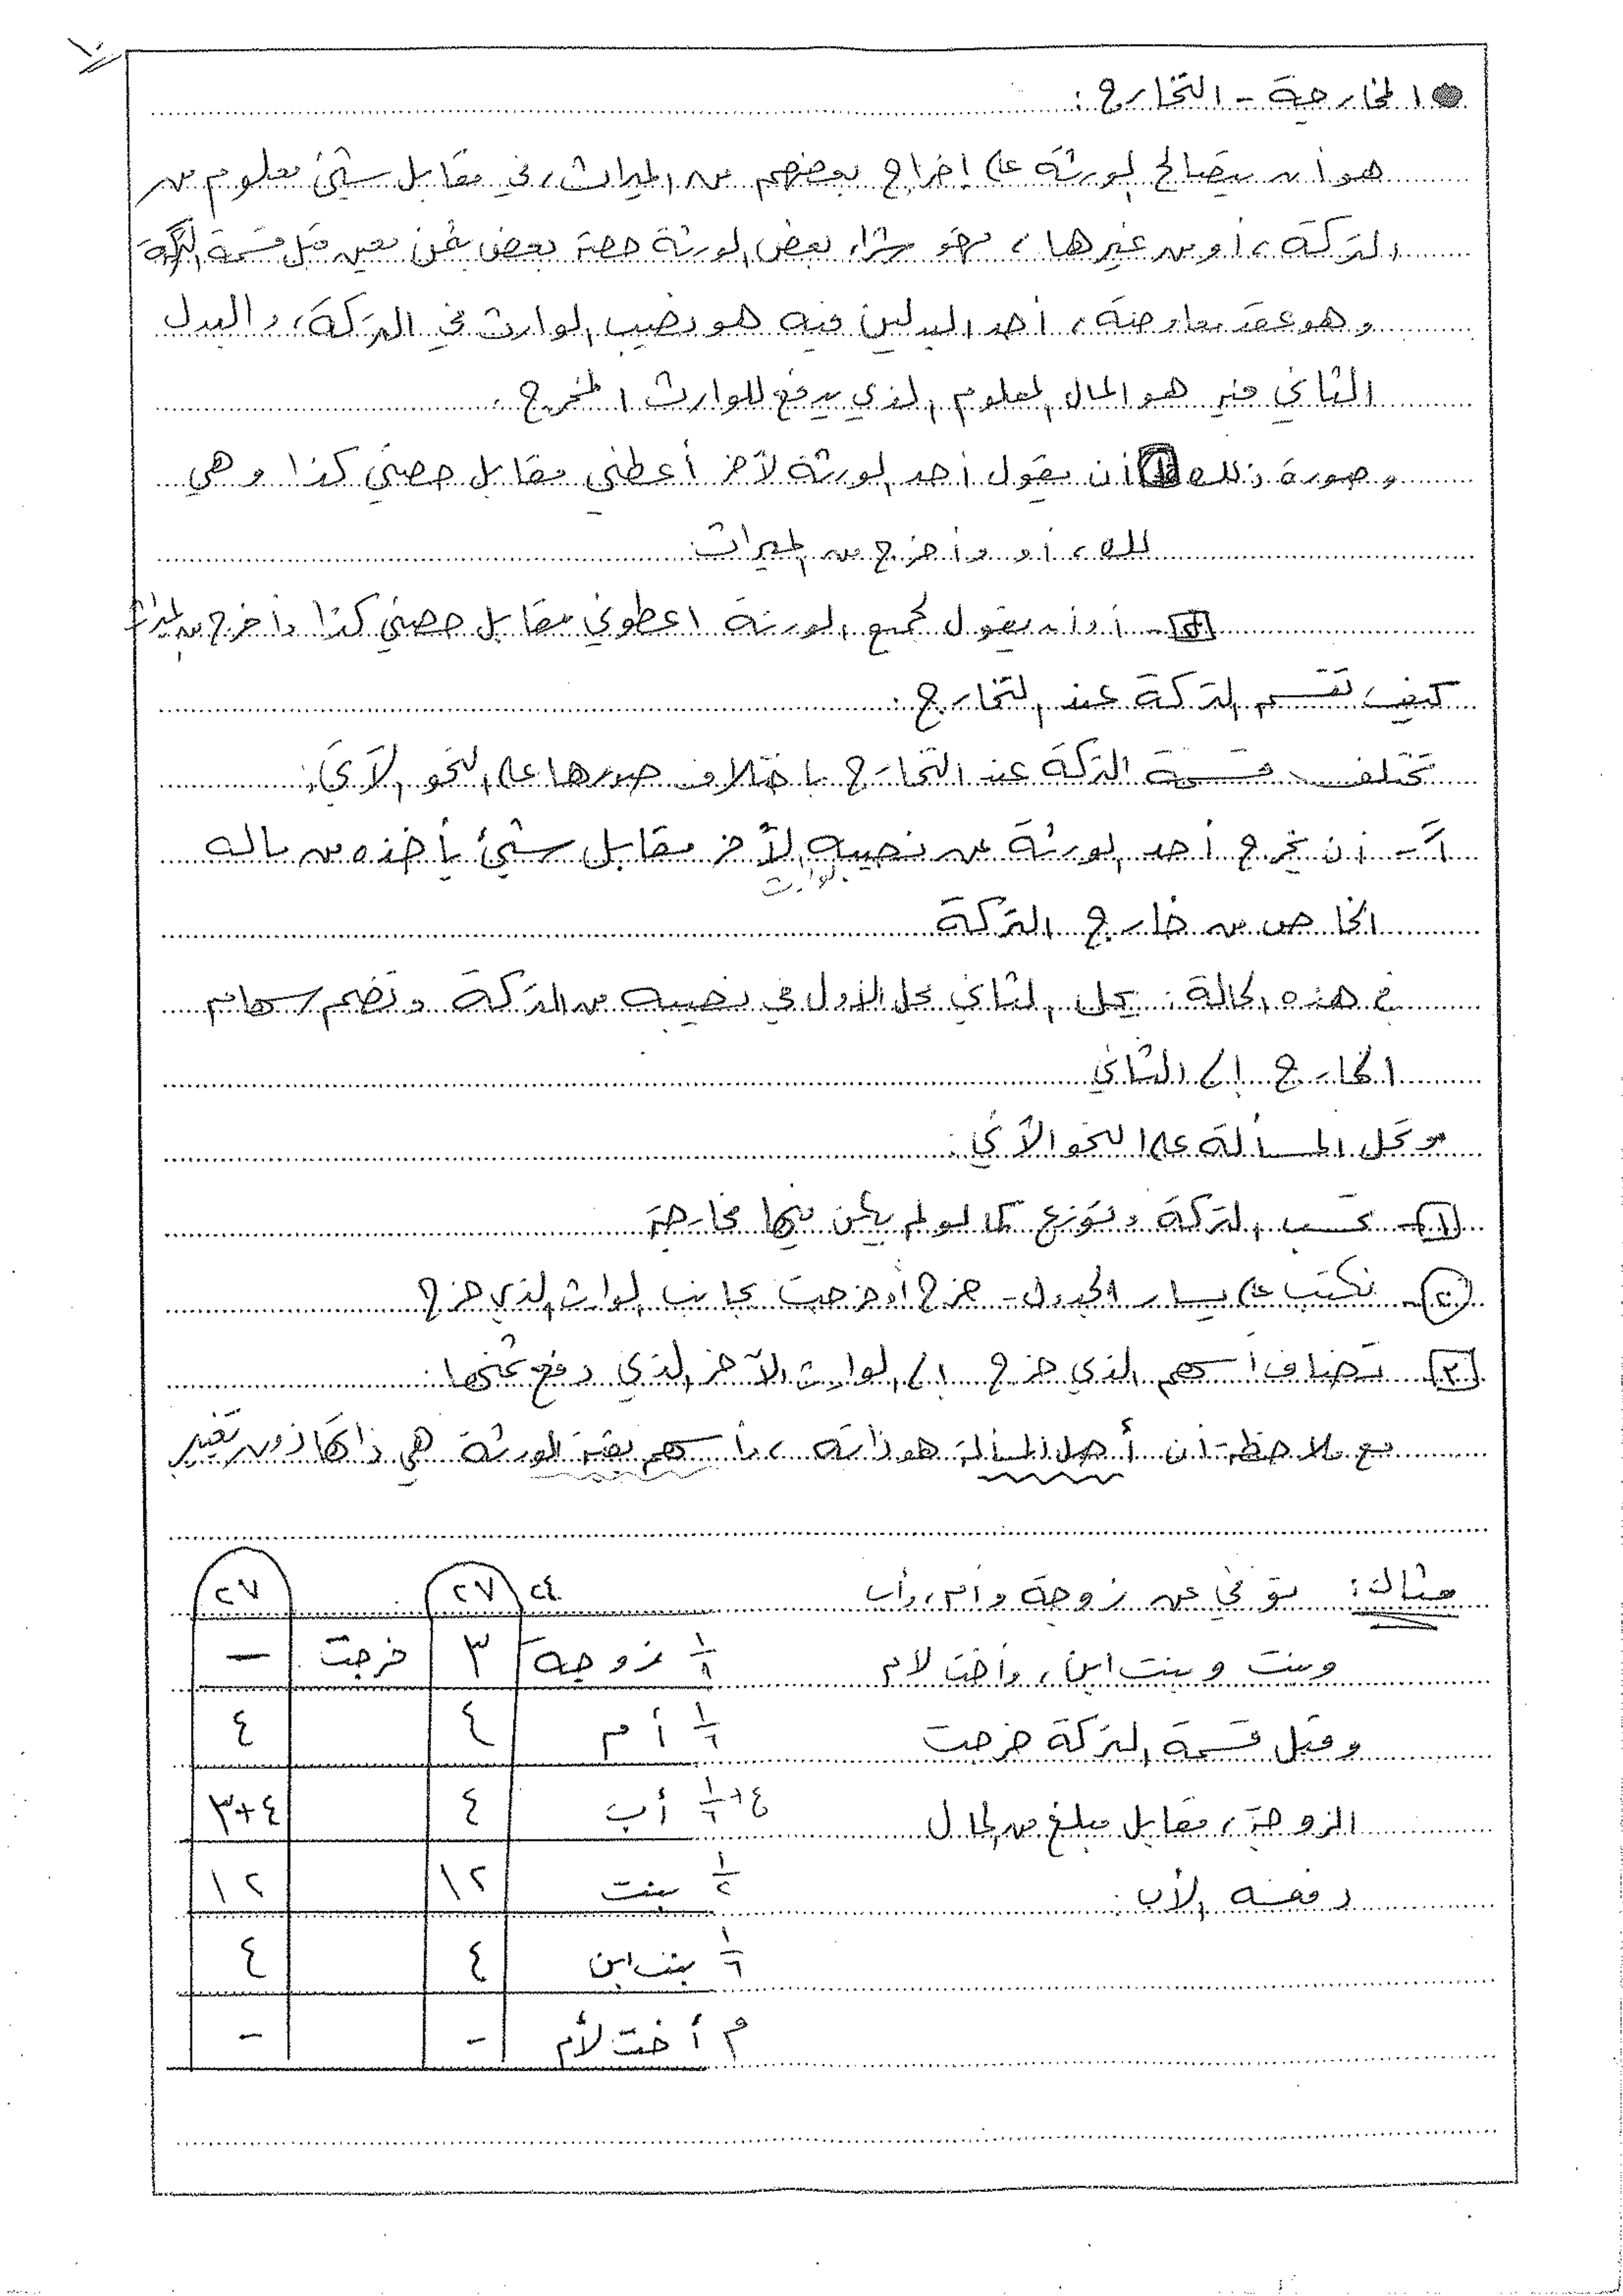 المخارجة - التخارج :
هو أن يتصالح الورثة على إخراج بعضهم من الميراث، في مقابل شيئ معلوم من
التركة، أو من غيرها، فهو شراء بعض الورثة حصة بعض بثمن معين قبل قسمة التركة
وهو عقد معاوضة، أحد البدلين فيه هو نصيب الوارث في التركة، والبدل
الثاني فيه هو المال المعلوم الذي يدفع للوارث المخرج .
وصورة ذلك ١ أن يقول أحد الورثة لآخر أعطني مقابل حصتي كذا وهي
لك، أو وأخرج من الميراث
٢- أو أن يقول لجميع الورثة اعطوني مقابل حصتي كذا وأخرج من الميراث
كيف تقسم التركة عند التخارج :
تختلف قسمة التركة عند التخارج باختلاف صورها على النحو الآتي:
أ- أن يخرج أحد الورثة عن نصيبه لآخر مقابل شيئ يأخذه من ماله
لوارث
الخاص من خارج التركة
في هذه الحالة : يحل الثاني محل الأول في نصيبه من التركة وتضم سهام
الخارج إلى الثاني
وتحل المسألة على النحو الآتي :
١- تحسب التركة وتوزع كما لو لم يكن فيها مخارجة
٢- نكتب على يسار الجدول - خرج أو خرجت بجانب الوارث الذي خرج
٣- تضاف أسهم الذي خرج إلى الوارث الآخر الذي دفع ثمنها .
مع ملاحظة أن أصل المسألة هو ذاته ، وأسهم بقية الورثة هي ذاتها دون تغيير
مثال: توفي عن زوجة وأم، وأب ٢٤ ٢٧ ٢٧
وبنت وبنت ابن، وأخت لأم ١/٨ زوجة ٣ خرجت —
وقبل قسمة التركة خرجت ١/٦ أم ٤ ٤
الزوجة، مقابل مبلغ من المال ١/٦ + ع أب ٤ ٤+٣
دفعه الأب . ١/٢ بنت ١٢ ١٢
١/٦ بنت ابن ٤ ٤
م أخت لأم - -